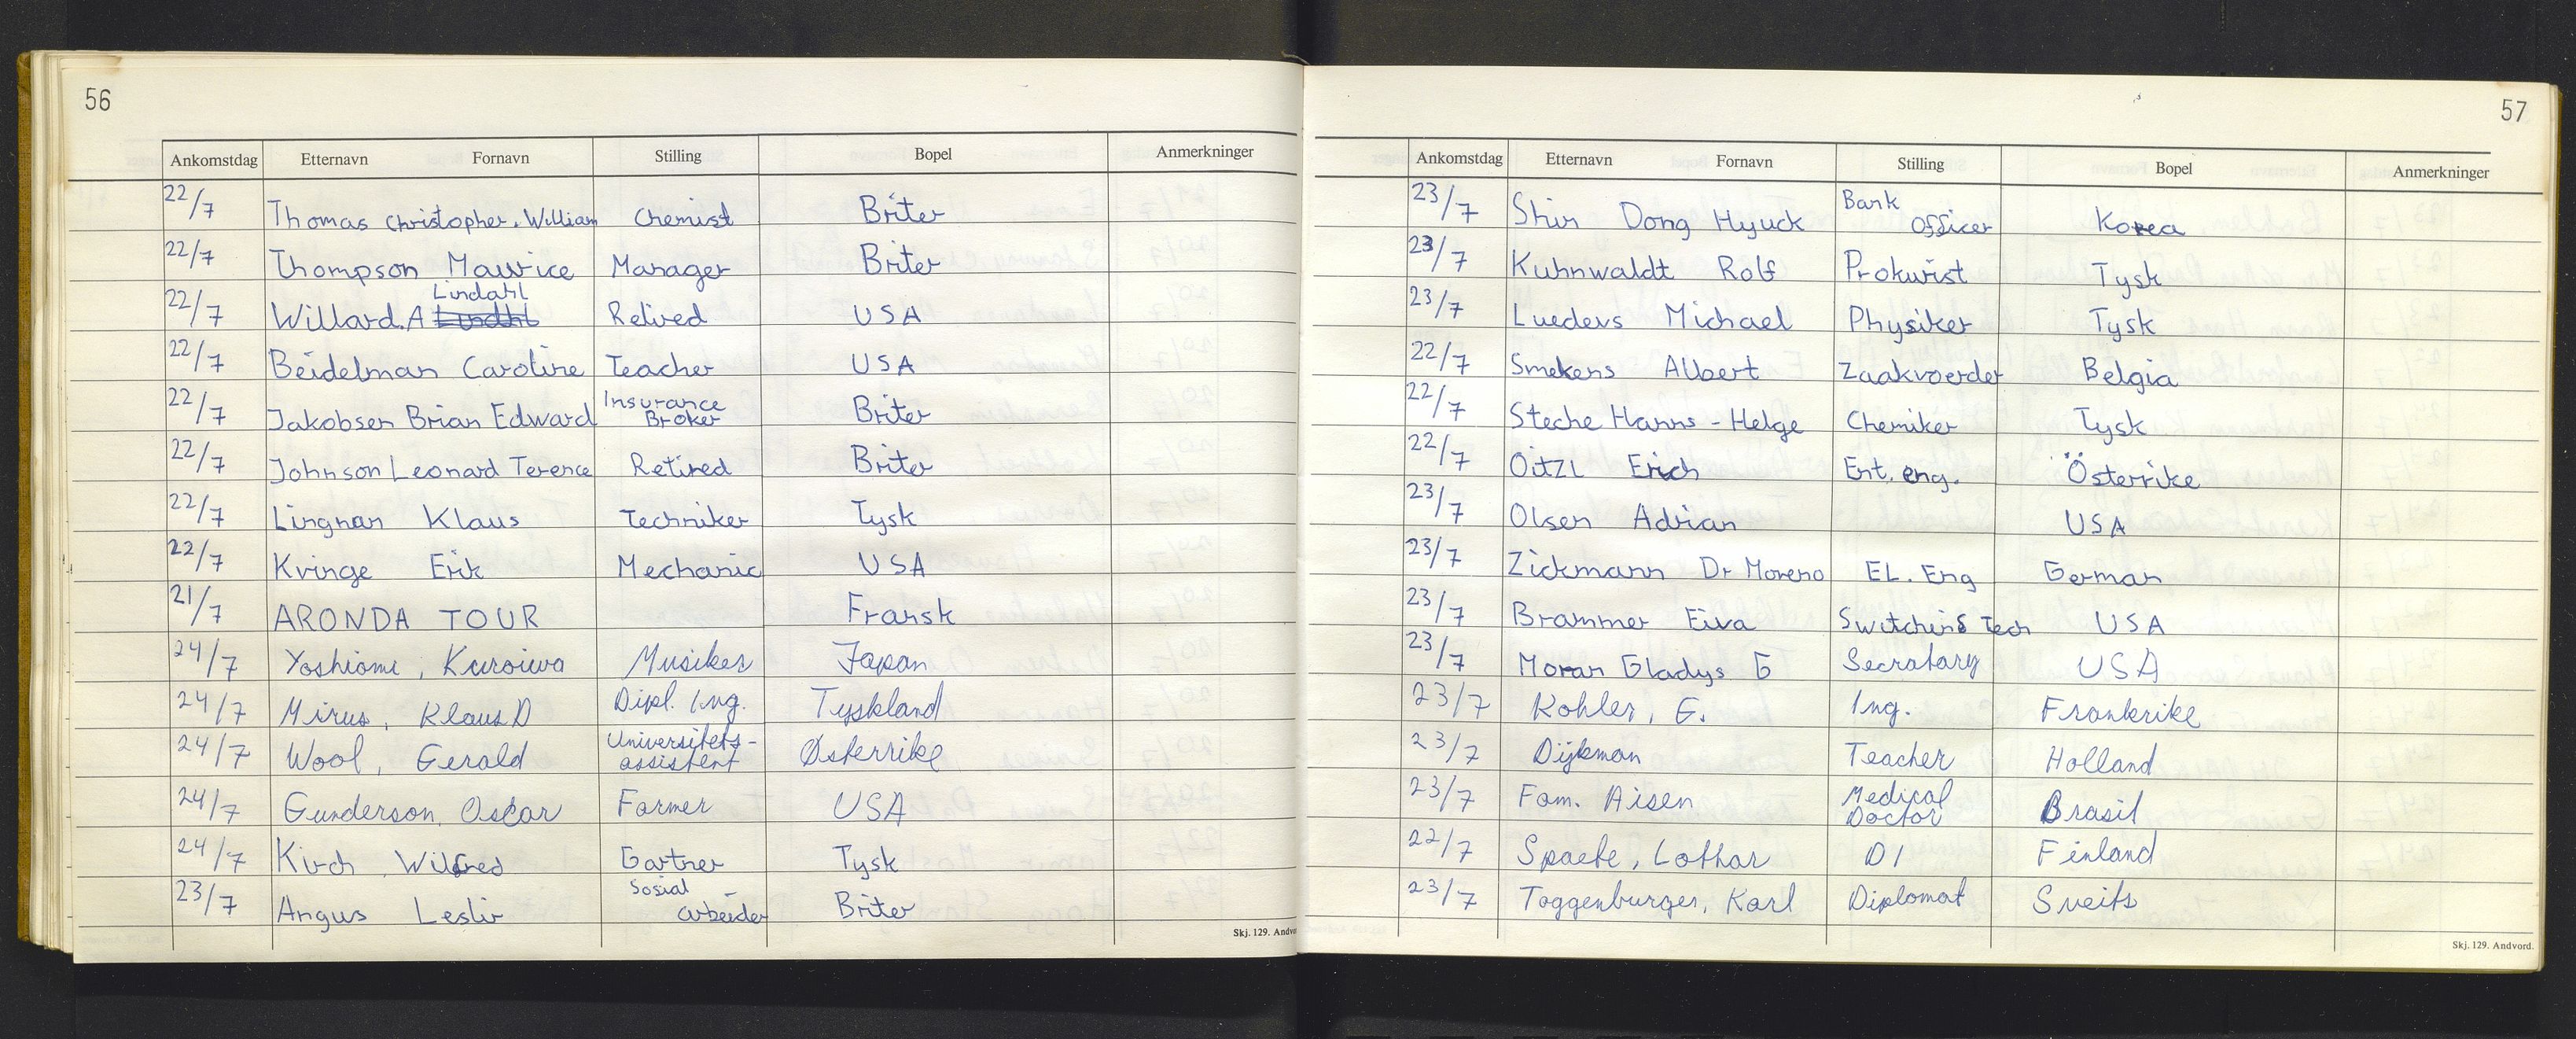 56
Ankomstdag Etternavn Fornavn Stilling Bopel Anmerkninger
22/7 Thomas Christopher. William Chemist Briter
22/7 Thompson Maurice Manager Briter
Lindahl
22/7 Willard. A Retired USA
22/7 Beidelman Caroline Teacher USA
22/7 Jakobsen Brian Edward Insurance Broker Briter
22/7 Johnson Leonard Terence Retired Briter
22/7 Lingnan Klaus Techniker Tysk
22/7 Kvinge Erik Mechanic USA
21/7 ARONDA TOUR Fransk
24/7 Yoshiomi, Kuroiwa Musiker Japan
24/7 Mirus, Klaus D Dipl. Ing. Tyskland
24/7 Wool, Gerald Universitets-assistent Østerrike
24/7 Gunderson, Oscar Farmer USA
24/7 Kirch Wilfred Gartner Tysk
23/7 Angus Leslie Sosial arbeider Briter
Skj. 129. Andvo
57
Ankomstdag Etternavn Fornavn Stilling Bopel Anmerkninger
23/7 Shin Dong Hyuck Bank Officer Korea
23/7 Kuhnwaldt Rolf Prokurist Tysk
23/7 Lueders Michael Physiker Tysk
22/7 Smekens Albert Zaakvoerder Belgia
22/7 Steche Hanns-Helge Chemiker Tysk
22/7 Oitzl Erich Ent. eng. Österrike
23/7 Olsen Adrian USA
23/7 Zickmann Dr Moreno EL. Eng German
23/7 Brammer Eiva Switching Tech USA
23/7 Moran Gladys G Secratary USA
23/7 Kohler, G. Ing. Frankrike
23/7 Dijkman Teacher Holland
23/7 Fam. Aisen Medical Doctor Brasil
22/7 Spaete, Lothar DI Finland
23/7 Toggenburger, Karl Diplomat Sveits
Skj. 129. Andvord.